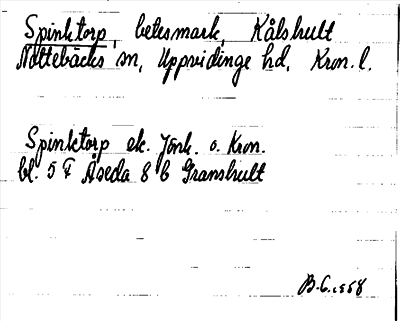 Spinktorp, betesmark, Kålshult
Nottebäcks sn, Uppvidinge hd, Kron. l.
Spinktorp ek. Jönk. o. Kron.
bl. 5 F Åseda 8 b Granshult
B.G. 1958